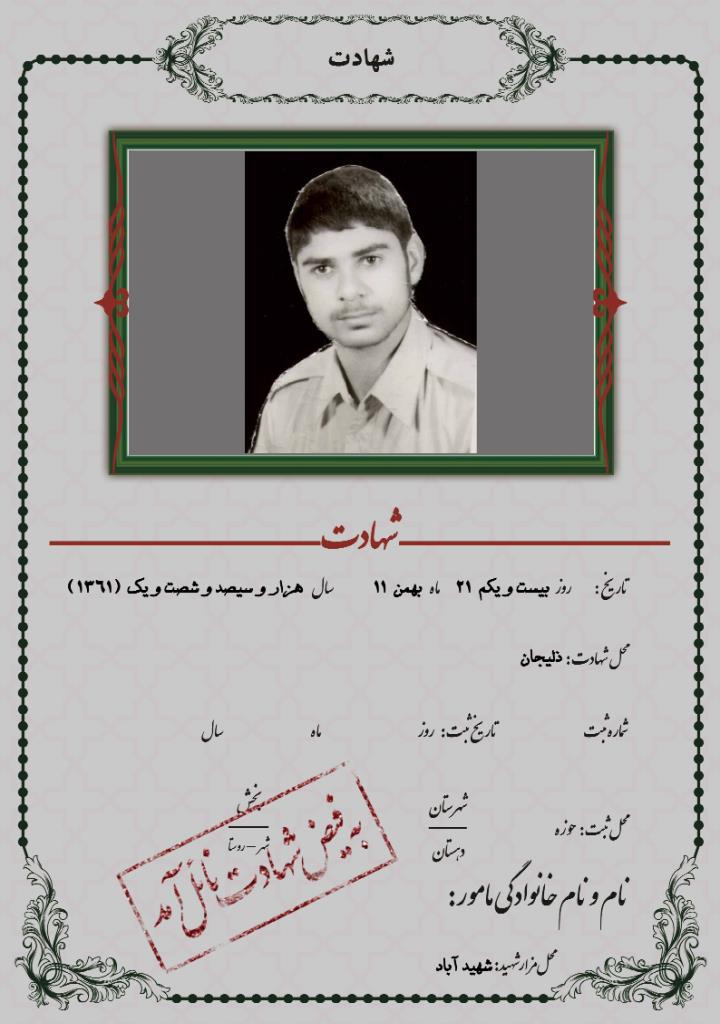 شهادت
شهادت
تاریخ: روز بیست و یکم ۲۱ ماه بهمن ۱۱ سال هزار و سیصد و شصت و یک (۱۳۶۱)
محل شهادت: ذلیجان
شماره ثبت تاریخ ثبت: روز ماه سال
محل ثبت: حوزه شهرستان بخش
دهستان شهر-روستا
نام و نام خانوادگی مامور:
به فیض شهادت نائل آمد
محل مزار شهید: شهید آباد